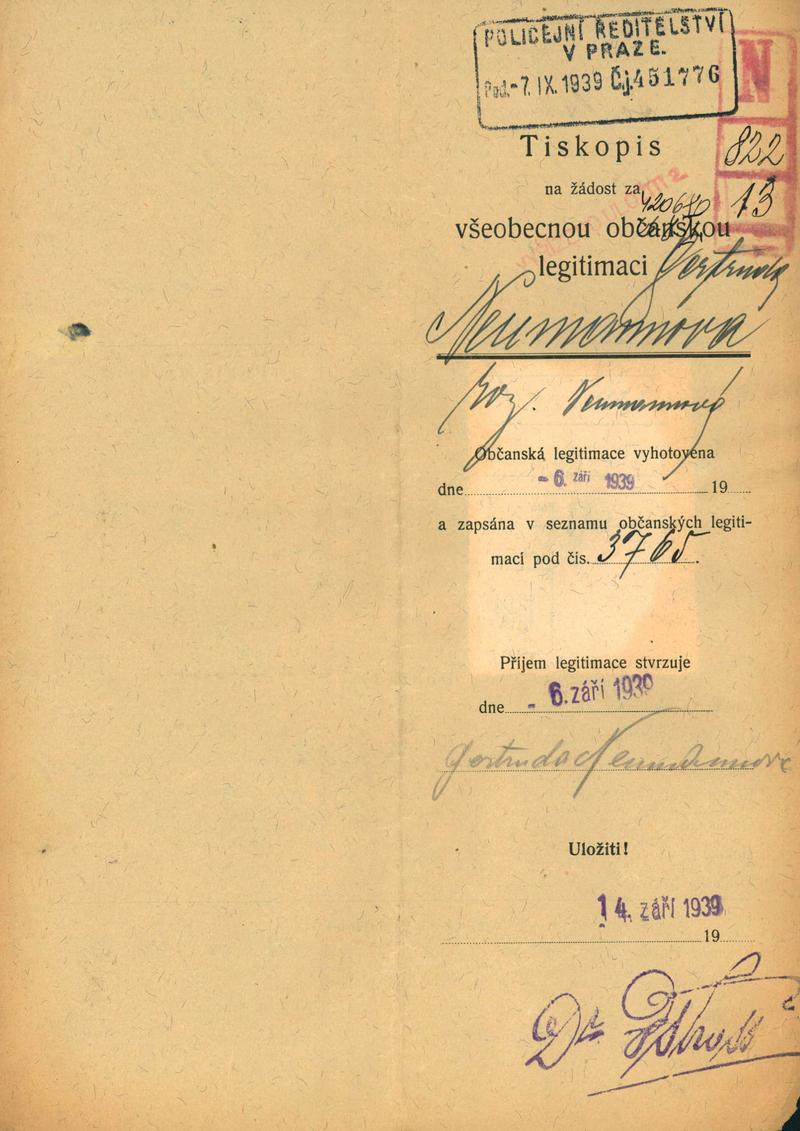 POLICEJNÍ ŘEDITELSTVÍ
V PRAZE.
Pod. -7. IX. 1939 Čj. 451776
N
822
13
Tiskopis
na žádost za
420680
všeobecnou občanskou
legitimaci Gertruda
Neumannová
roz. Neumannová
Občanská legitimace vyhotovena
dne - 6. září 1939 19
a zapsána v seznamu občanských legiti-
mací pod čís. 3765.
Příjem legitimace stvrzuje
dne - 6. září 1939
Gertruda Neumannová
Uložiti!
14. září 1939
19
Dr